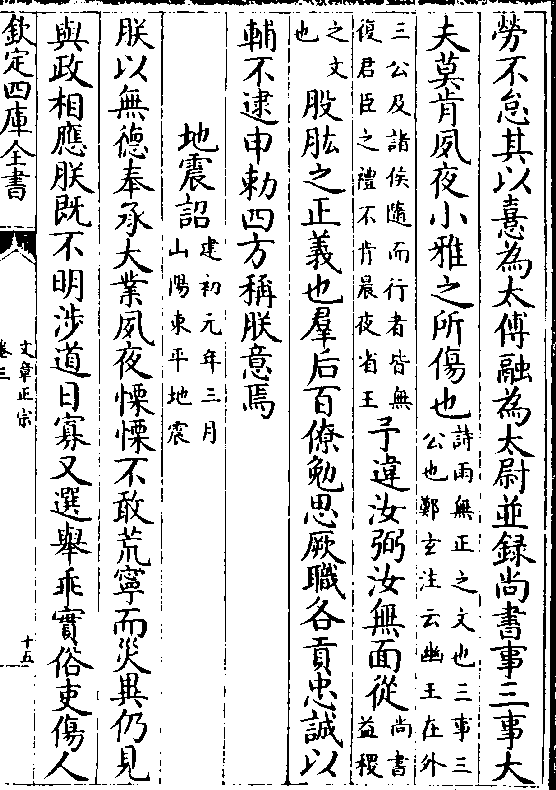 勞不怠其以憙為太傅融為太尉並録尚書事三事大
夫莫肯夙夜小雅之所傷也詩雨無正之文也三事三
公也鄭玄注云幽王在外
三公及諸侯隨而行者皆無
復君臣之禮不肯晨夜省王予違汝弼汝無面從尚書
益稷
之文
也股肱之正義也羣后百僚勉思厥職各貢忠誠以
輔不逮申勅四方稱朕意焉
地震詔建初元年三月
山陽東平地震
朕以無德奉承大業夙夜慄慄不敢荒寧而災異仍見
與政相應朕既不明涉道日寡又選舉乖實俗吏傷人
欽定四庫全書
文章正宗
卷三
十五